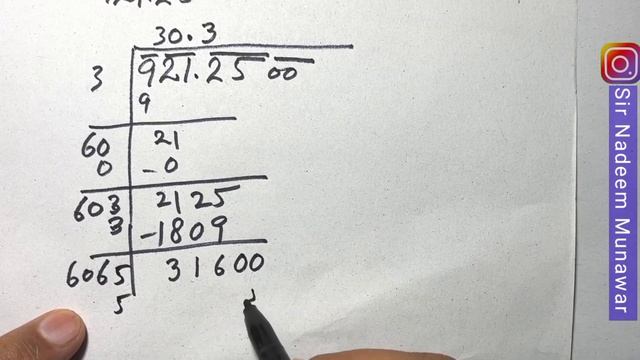 30.3
3 921.25 00
9
60 21
0 -0
603 2125
3 -1809
6065 31600
5
Sir Nadeem Munawar